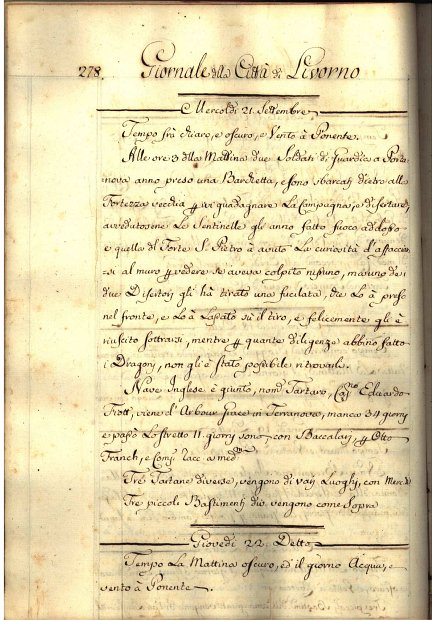 278. Giornale della Città di Livorno
Mercoldi 21. Settembre
Tempo frà chiaro, e oscuro, e Vento à Ponente.
Alle ore 3 della Mattina due Soldati di Guardia a Porta
nova anno preso una Barchetta, e sono sbarcati dietro alla
Fortezza vecchia per guadagnare La Campagna, e disertare,
avvedutosene Le Sentinelle gli anno fatto fuoco addosso
e quella del Forte S. Pietro à avuto La curiosità d'affacciar
si al muro per vedere se aveva colpito nissuno, ma uno dei
due Disertori gli hà tirato una fucilata, che Lo à preso
nel fronte, e Lo à Lasciato sù il tiro, e felicemente gli è
riuscito sottrarsi, mentre per quante diligenze abbino fatto
i Dragoni, non gli è stato possibile ritrovarli.
Nave Inglese è giunto, nom.ª Tartaro, Cap.no Eduardo
Trott, viene d'Arbour Grace in Terranova, manca 34 giorni
e passò Lo stretto 11. giorni sono con Baccalari per Otto
Franch, e Comp. racc. a med.mi
Tre Tartane diverse, vengono di varj Luoghi, con Merc.
Tre piccoli Bastimenti che vengono come Sopra
Giovedi 22. Detto
Tempo La Mattina oscuro, ed il giorno Acqua, e
vento à Ponente.